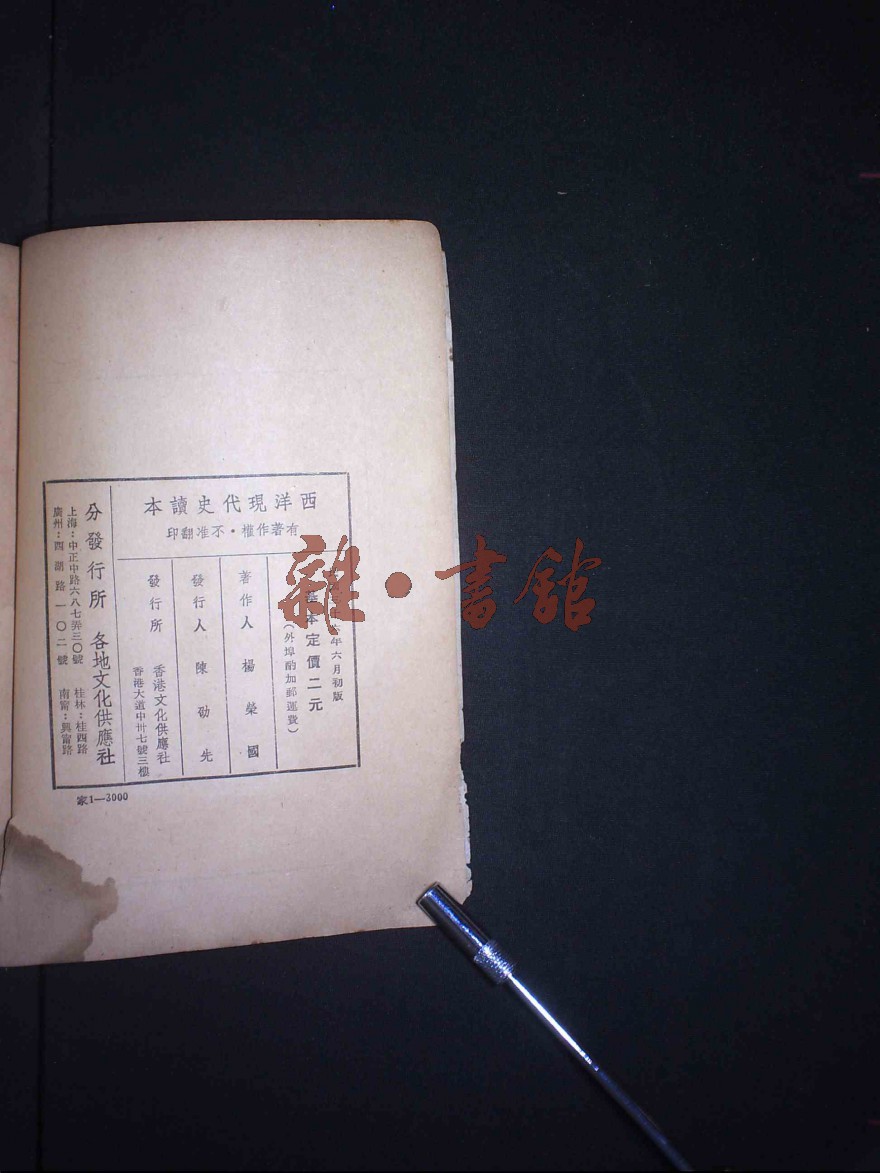 西洋現代史讀本
有著作權・不准翻印
年六月初版
本定價二元
(外埠酌加郵運費)
著作人 楊榮國
發行人 陳劭先
發行所 香港文化供應社
香港大道中卅七號三樓
分發行所 各地文化供應社
上海：中正中路六八七弄三〇號 桂林：桂西路
廣州：西湖路一〇二號 南甯：興甯路
家1—3000
雜・書館